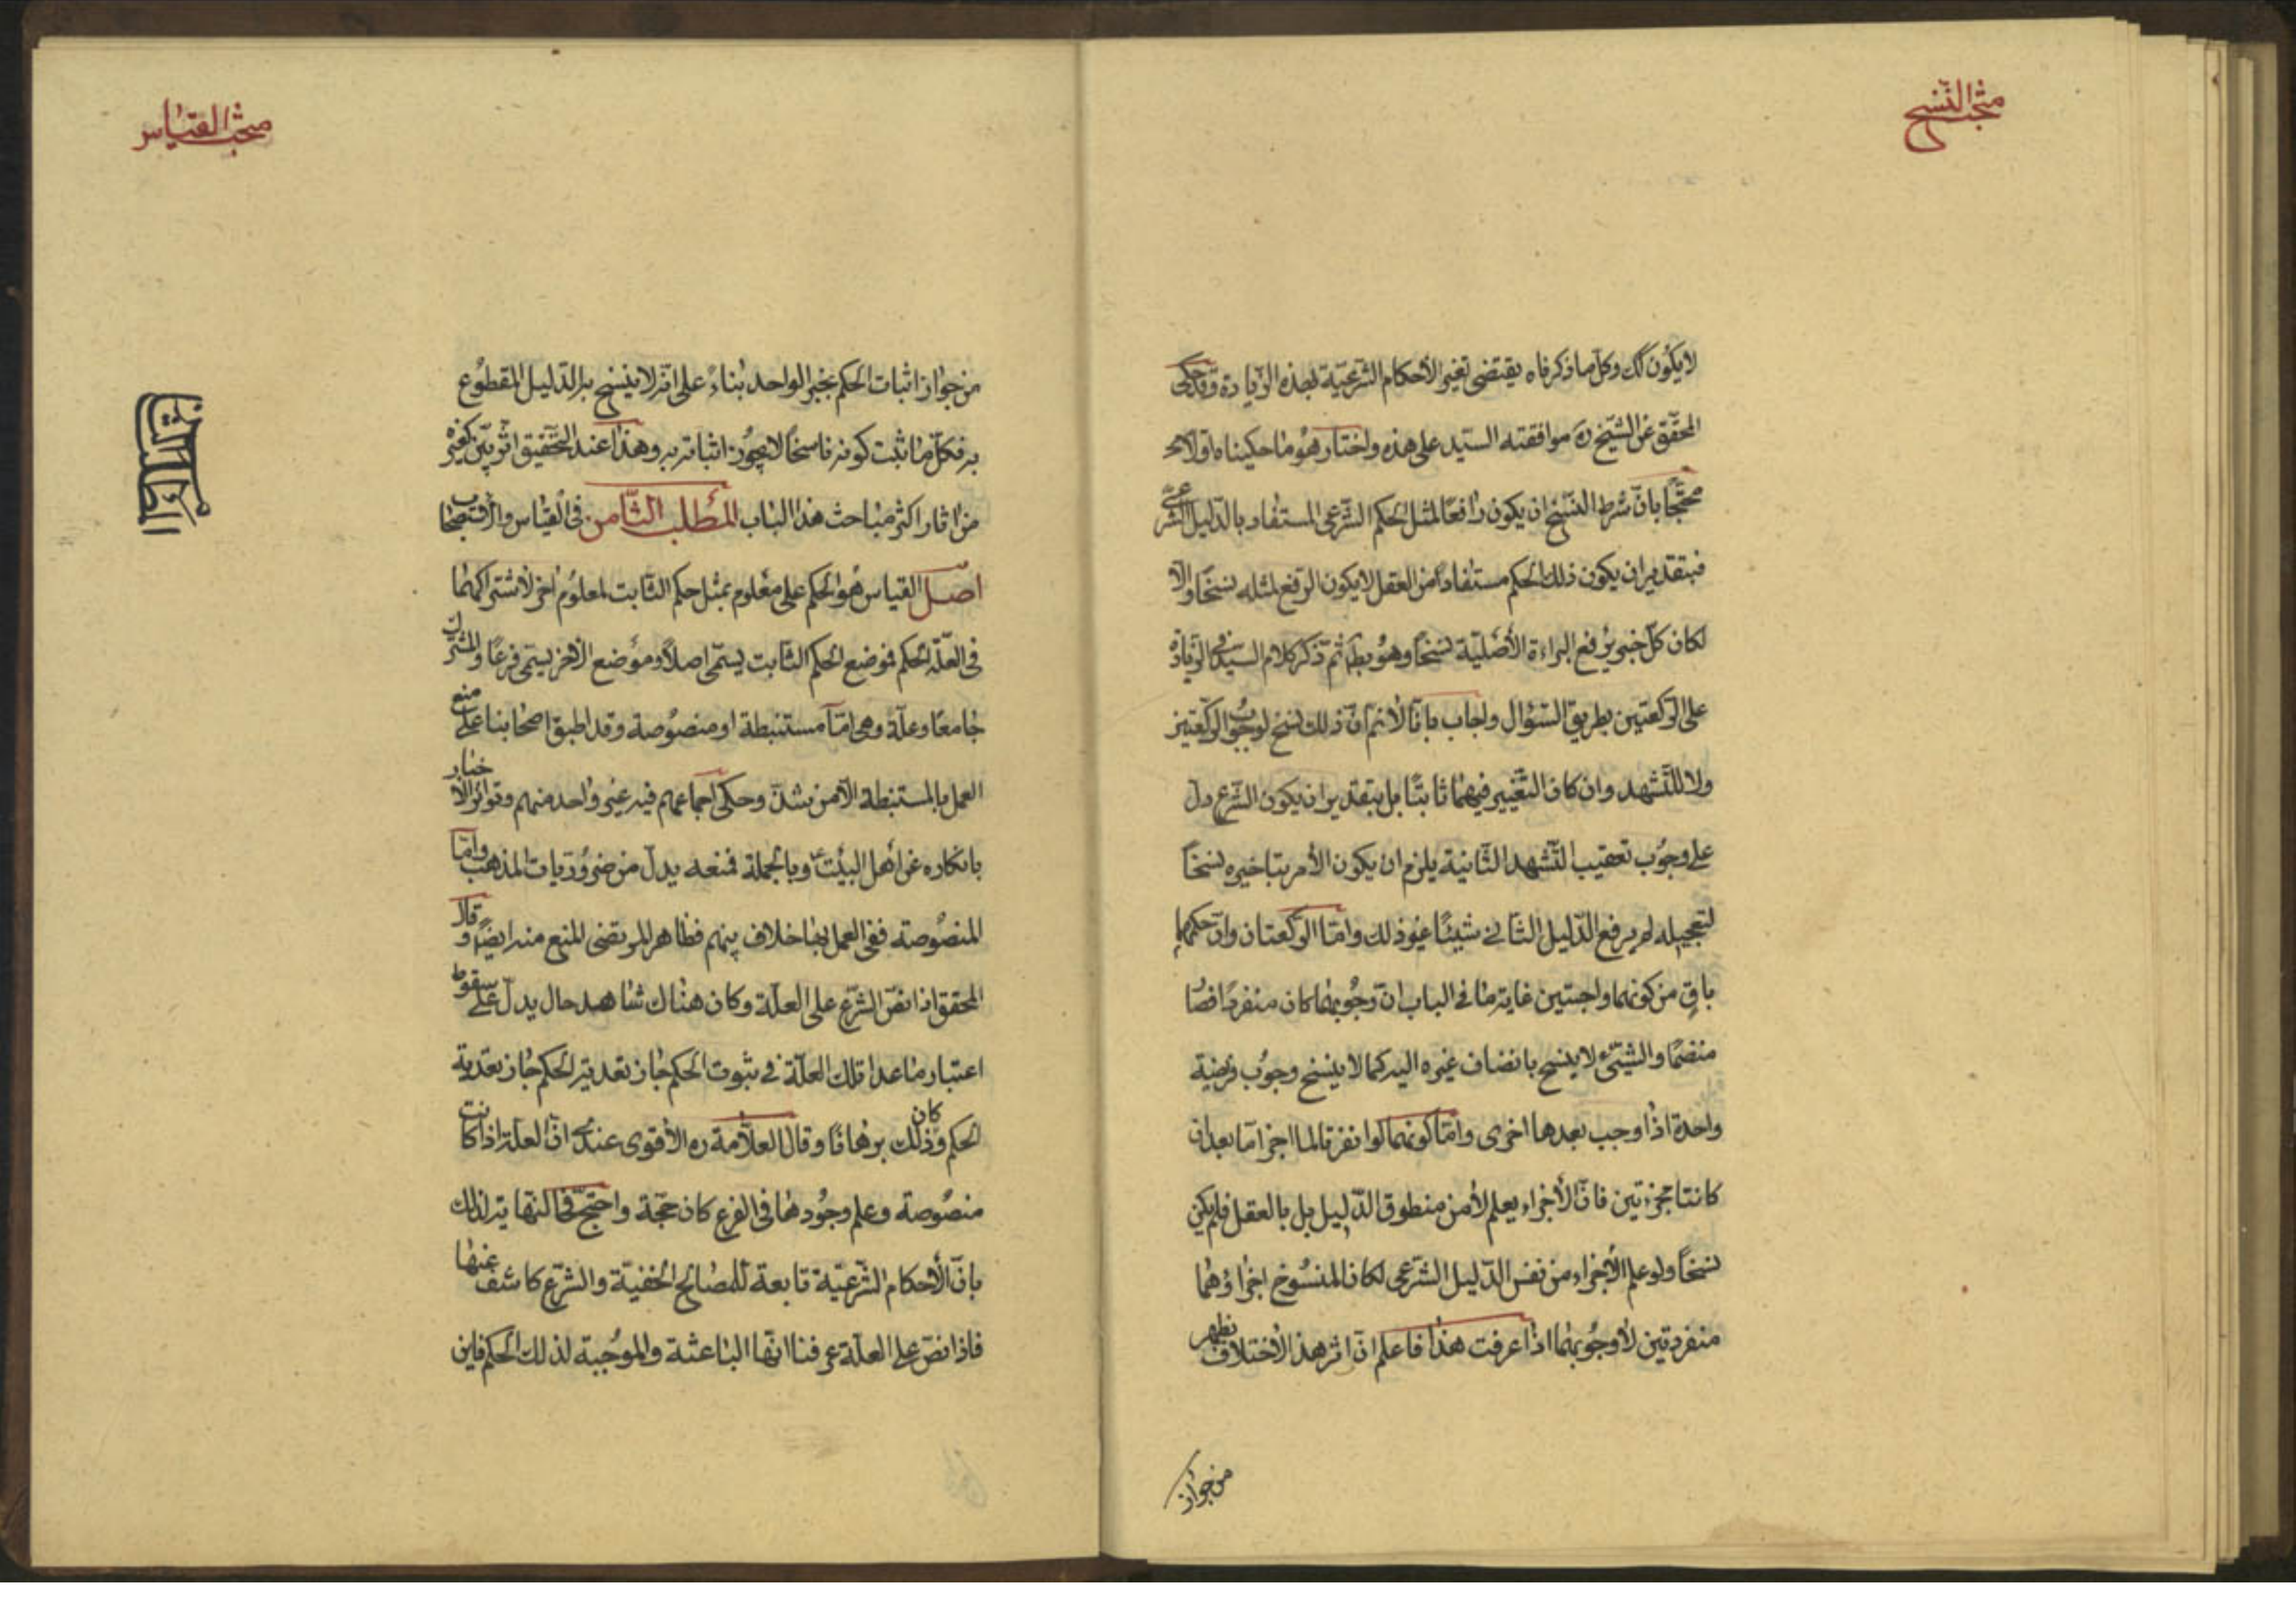 مبحث النسخ
لا يكون كك وكل ما ذكرناه يقتضى تغير الأحكام الشرعيّة بهذه الزيادة وقد حكى
المحقق عن الشيخ ره موافقته السيّد على هذه واختار هو ما حكيناه اولا
محتجًّا بانّ شرط النسخ ان يكون رافعًا لمثل الحكم الشرعى المستفاد بالدّليل الشرعىّ
فبتقدير ان يكون ذلك الحكم مستفادًا من العقل لا يكون الرفع لمثله نسخًا والّا
لكان كلّ خبر يرفع البراءة الأصليّة نسخًا وهو بط ثمّ ذكر كلام السيّد فى الزيادة
على الركعتين بطريق السّؤال واجاب بانّا لا نم انّ ذلك نسخ لوجوب الركعتين
ولا للتّشهد وان كان التّغيير فيهما ثابتًا بل بتقدير ان يكون الشّرع دلّ
على وجوب تعقيب التّشهد الثّانية يلزم ان يكون الأمر بتاخيره نسخًا
لتعجيله لم يرفع الدّليل الثّانى شيئًا غير ذلك وامّا الرّكعتان وانّ حكمهما
باقٍ من كونهما واجبتين غاية ما فى الباب انّ وجوبهما كان منفردًا فصا
منضمًا والشّيئ لا ينسخ بانضاف غيره اليه كما لا ينسخ وجوب فريضة
واحدة اذا وجب بعدها اخرى وامّا كونهما لو انفردتا لما اجزأتا بعد ان
كانتا مجزءتين فانّ الأجزاء يعلم لا من منطوق الدّليل بل بالعقل فلم يكن
نسخًا ولو علم الأجزاء من نفس الدّليل الشّرعى لكان المنسوخ اجزاؤهما
منفردتين لا وجوبهما اذا عرفت هذا فاعلم انّ اثر هذا الأختلاف يظهر
من جواز
مبحث القياس
من جواز اثبات الحكم بخبر الواحد بناءً على انّه لا ينسخ به الدّليل المقطوع
به فكلّ ما ثبت كونه ناسخًا لا يجوز اثباته به وهذا عند التّحقيق اثر بيّن كغيره
من اثار اكثر مباحث هذا الباب المطلب الثّامن فى القياس والاستصحاب
اصل القياس هو الحكم على معلوم بمثل حكم الثّابت لمعلوم اخر لاشتراكهما
فى العلّة الحكم فموضع الحكم الثّابت يسمّى اصلًا وموضع الأخر يسمّى فرعًا والمشترك
جامعًا وعلّة وهى امّا مستنبطة او منصوصة وقد اطبق اصحابنا على منع
العمل بالمستنبطة الّا من شذّ وحكى اجماعهم فيه غير واحد منهم وتواتر الأخبار
بانكاره عن اهل البيت ع وبالجملة فمنعه يدلّ من ضروريات المذهب وامّا
المنصوصة ففى العمل بها خلاف بينهم فظاهر المرتضى المنع منه ايضًا وقال
المحقق اذا نصّ الشّرع على العلّة وكان هناك شاهد حال يدلّ على سقوط
اعتبار ما عدا تلك العلّة فى ثبوت الحكم جاز تعدية الحكم جاز تعدية
الحكم وكان ذلك برهانًا وقال العلّامة ره الأقوى عندى انّ العلّة اذا كانت
منصوصة وعلم وجودها فى الفرع كان حجّة واحتجّ فى النّهاية لذلك
بانّ الأحكام الشّرعيّة تابعة للمصالح الخفيّة والشّرع كاشف عنها
فاذا نصّ على العلّة عرفنا انّها الباعثة والموجبة لذلك الحكم فاين